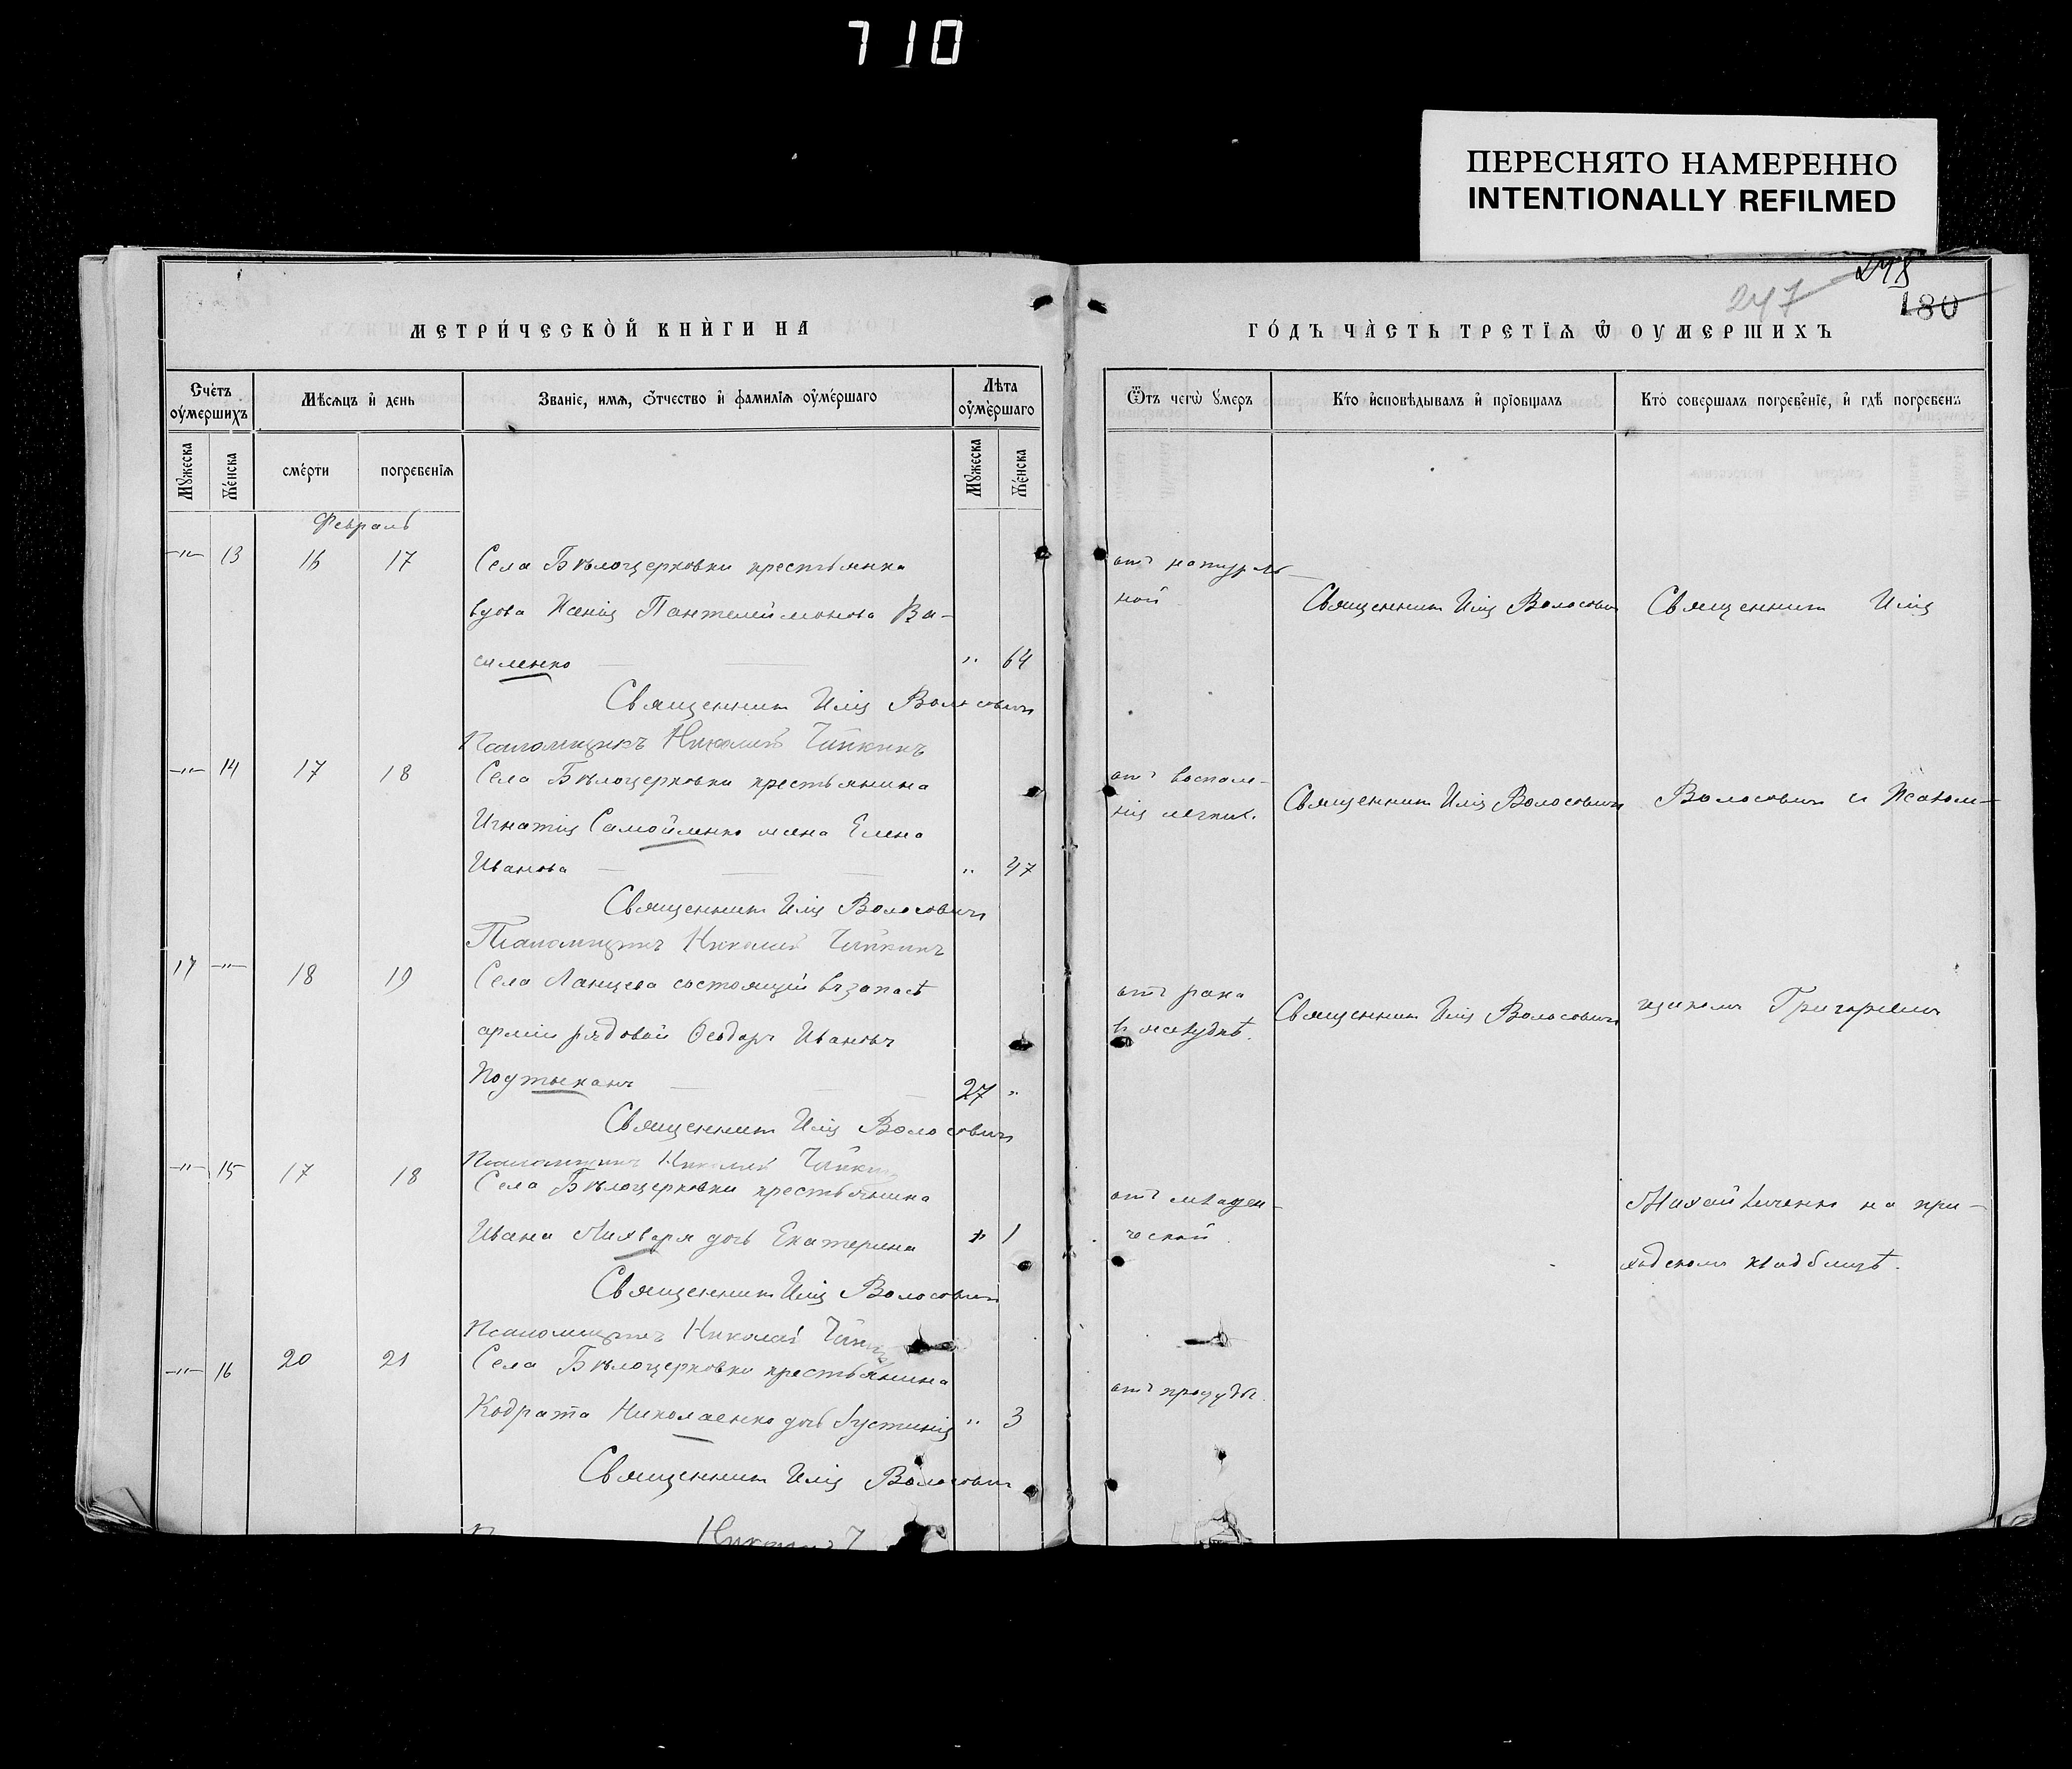 710
ПЕРЕСНЯТО НАМЕРЕННО
INTENTIONALLY REFILMED
247
248
180
МЕТРИ́ЧЕСКО̀Й КНЍГИ НА
ГО́ДЪ ЧА̀СТЬ ТРЕТІѦ Ѿ ОУМЕРШИХЪ
Сче́тъ оу҆ме́ршихъ
Мѣсѧцъ и҆ день
Зва́ніе, имѧ, ѻ҆́тчество и҆ фамилїѧ оу҆ме́ршаго
Лѣта оу҆ме́ршаго
Ѿтъ чегѡ̀ у҆меръ
Кто̀ и҆сповѣ́дывалъ и҆ прїобща́лъ
Кто̀ соверша́лъ погребе́ніе, и҆ гдѣ̀ погребе́нъ
Мꙋжеска
Же́нска
сме́рти
погребе́нїѧ
Мꙋжеска
Же́нска
Февраль
-"- 13 16 17 Села Бѣлоцерковки крестьянка
вдова Ксенія Пантелеймонова Ва-
силенко " 64
Священникъ Илія Волосовичъ
Псаломщикъ Николай
от натураль-
ной
Священникъ Илія Волосовичъ
Священникъ Илія
-"- 14 17 18 Села Бѣлоцерковки крестьянина
Игнатія Самойленко жена Елена
Иванова " 47
Священникъ Илія Волосовичъ
Псаломщикъ Николай
отъ воспале-
нія легких.
Священникъ Илія Волосовичъ
Волосовичъ и Псалом-
17 -"- 18 19 Села Ланцева состоящій въ запасѣ
арміи рядовой Ѳеодоръ Ивановъ
27 "
Священникъ Илія Волосовичъ
Псаломщикъ Николай
отъ рака
в желудкѣ.
Священникъ Илія Волосовичъ
щикомъ Григоріемъ
-"- 15 17 18 Села Бѣлоцерковки крестьянина
Ивана дочь Екатерина " 1
Священникъ Илія Волосовичъ
Псаломщикъ Николай
отъ младен-
ческой
Михайличенко на при-
ходскомъ кладбищѣ.
-"- 16 20 21 Села Бѣлоцерковки крестьянина
Кодрата Николаенко дочь Іустинія " 3
Священникъ Илія Волосовичъ
отъ простуды.